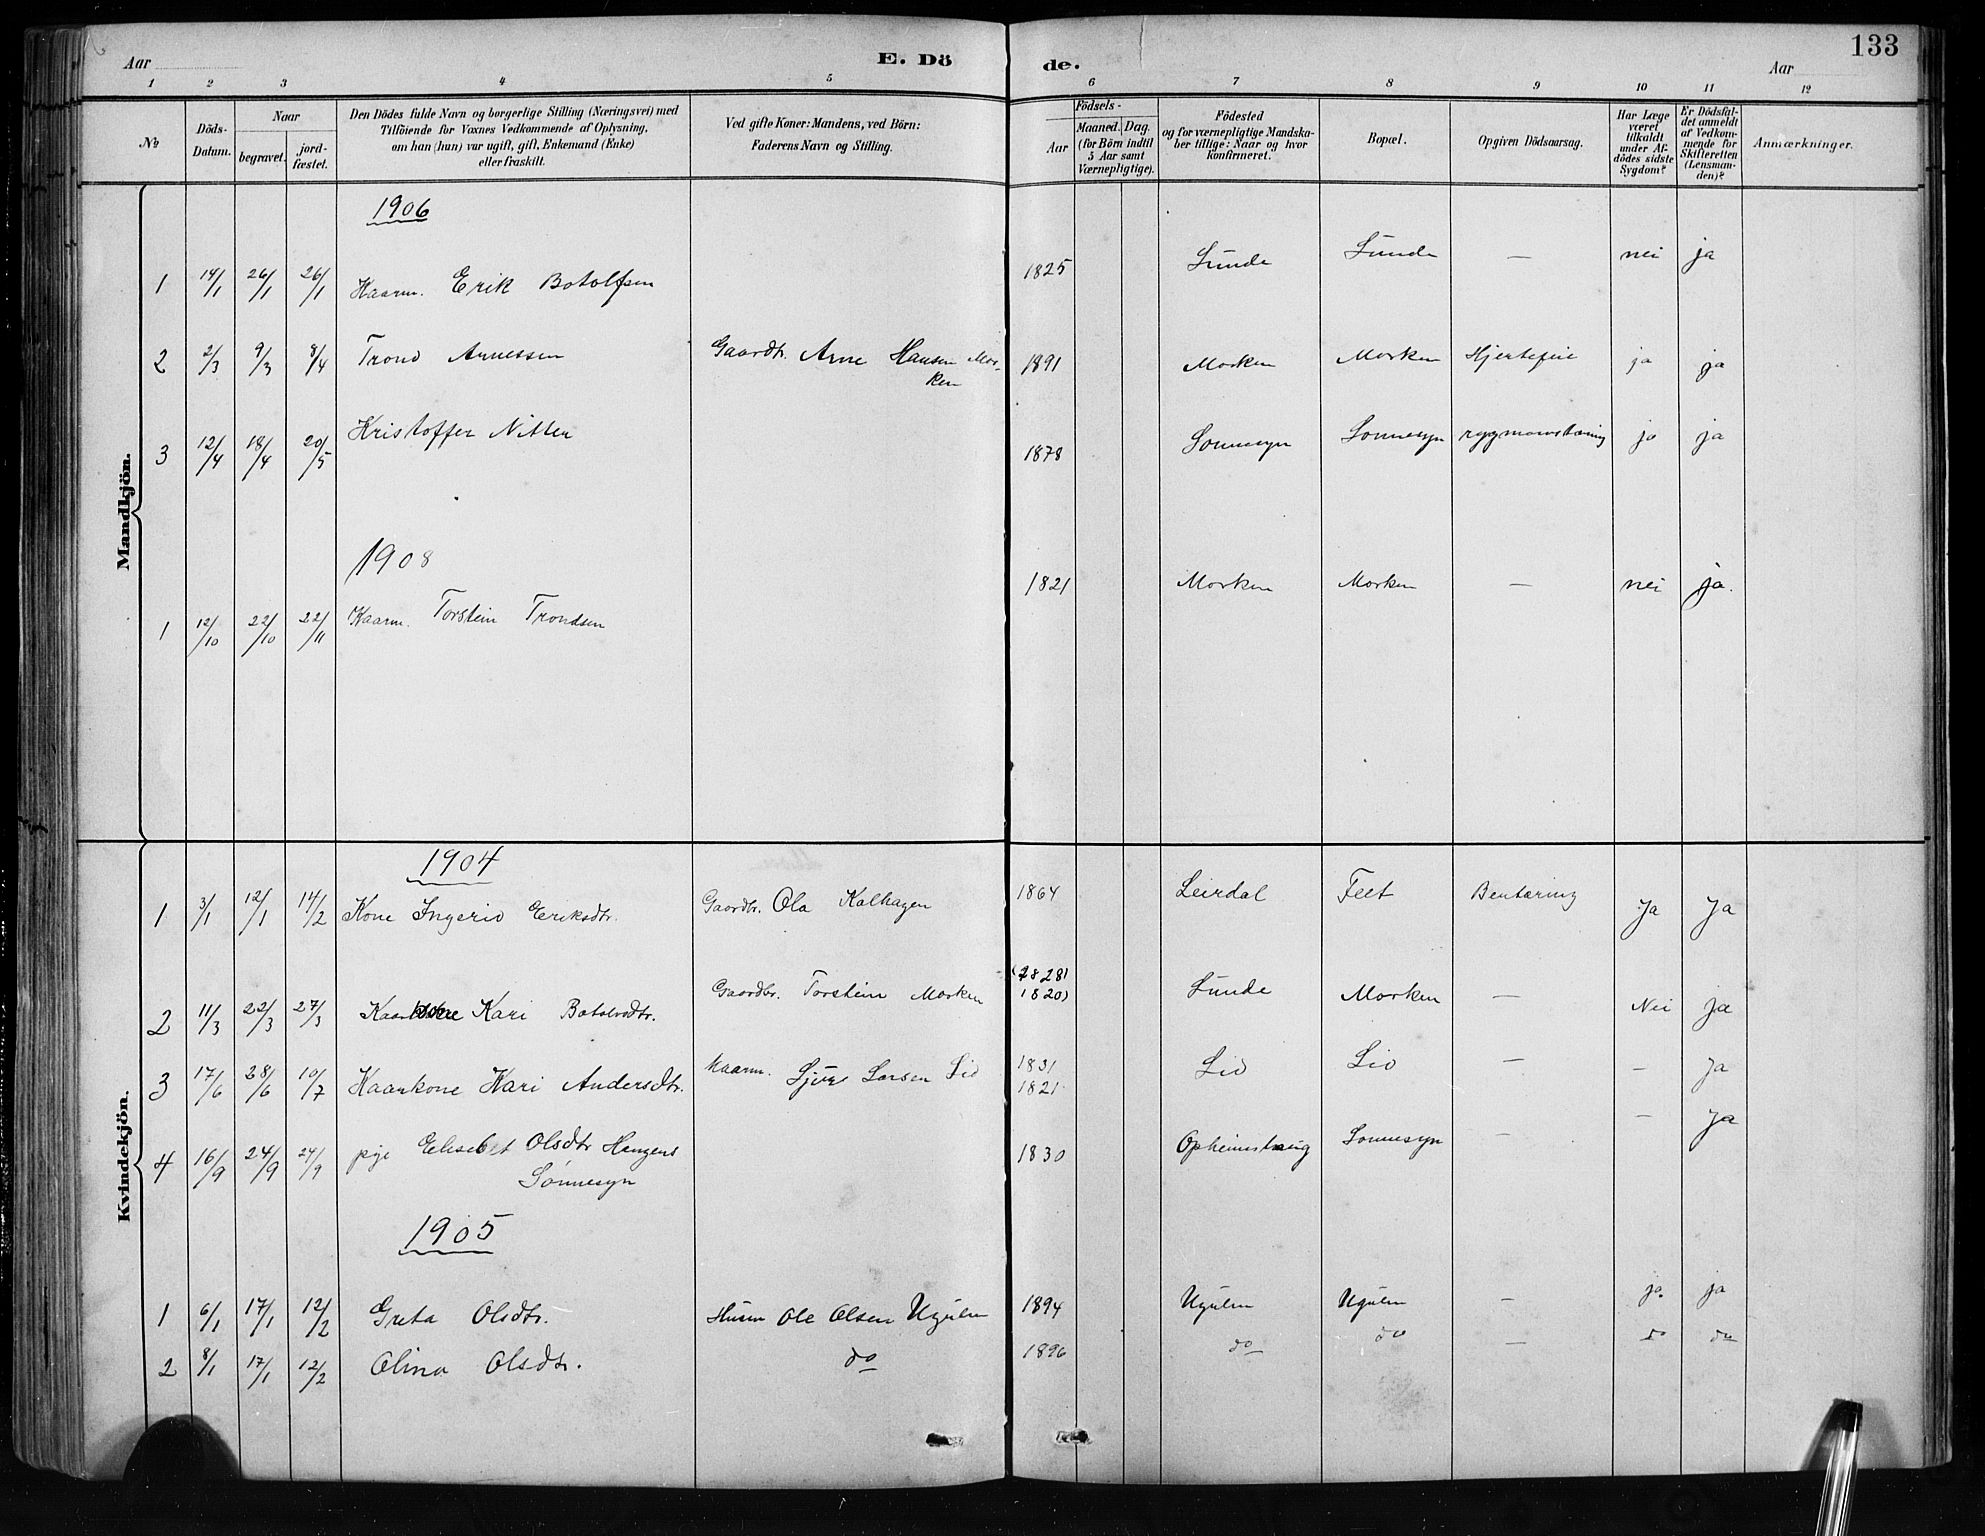 Aar
E. Dö
de.
Aar
133
1 2 3 4 5 6 7 8 9 10 11 12
No
Döds-
Datum.
Naar
begravet.
jord-
fæstet.
Den Dödes fulde Navn og borgerlige Stilling (Næringsvei) med
Tilföiende for Voxnes Vedkommende af Oplysning,
om han (hun) var ugift, gift, Enkemand (Enke)
eller fraskilt.
Ved gifte Koner: Mandens, ved Börn:
Faderens Navn og Stilling.
Födsels-
Aar
Maaned. Dag.
(for Börn indtil
5 Aar samt
Værnepligtige).
Födested
og for værnepligtige Mandska-
ber tillige: Naar og hvor
konfirmeret.
Bopæl.
Opgiven Dödsaarsag.
Har Læge
været
tilkaldt
under Af-
dödes sidste
Sygdom?
Er Dödsfal-
det anmeldt
af Vedkom-
mende for
Skifteretten
(Lensman-
den)?
Anmærkninger.
Mandkjön.
1906
1 14/1 26/1 26/1 Kaarm. Erik Botolfsen 1825 Lunde Lunde — nei ja
2 2/3 9/3 8/4 Trond Arnessen Gaardbr. Arne Hansen Mor-
ken 1891 Morken Morken Hjertefeil ja ja
3 12/4 18/4 20/5 Kristoffer Nitter 1878 Sonnesyn Sonnesyn rygmarvstæring ja ja
1908
1 12/10 22/10 22/11 Kaarm. Torstein Trondsen 1821 Morken Morken — nei ja.
Kvindekjön.
1904
1 3/1 12/1 14/2 Kone Ingerid Eriksdtr. Gaardbr. Ola Kalhagen 1864 Leirdal Feet Bentæring Ja Ja
2 11/3 22/3 27/3 Kaarkone Kari Botolvdtr. Gaardbr. Torstein Morken (1828)
1820) Lunde Morken — Nei ja
3 17/6 28/6 10/7 Kaarkone Kari Andersdtr. Kaarm. Sjur Larsen Lid 1831
1821 Lid Lid — — Ja
4 16/9 24/9 24/9 pige Elisebet Olsdtr Haugens
Sønnesyn 1830 Opheimshaug Sonnesyn — — Ja
1905
1 6/1 17/1 12/2 Greta Olsdtr. Husm Ole Olsen Ugulen 1894 Ugulen Ugulen — ja. ja
2 8/1 17/1 12/2 Olina Olsdtr. do 1896 do do — do do